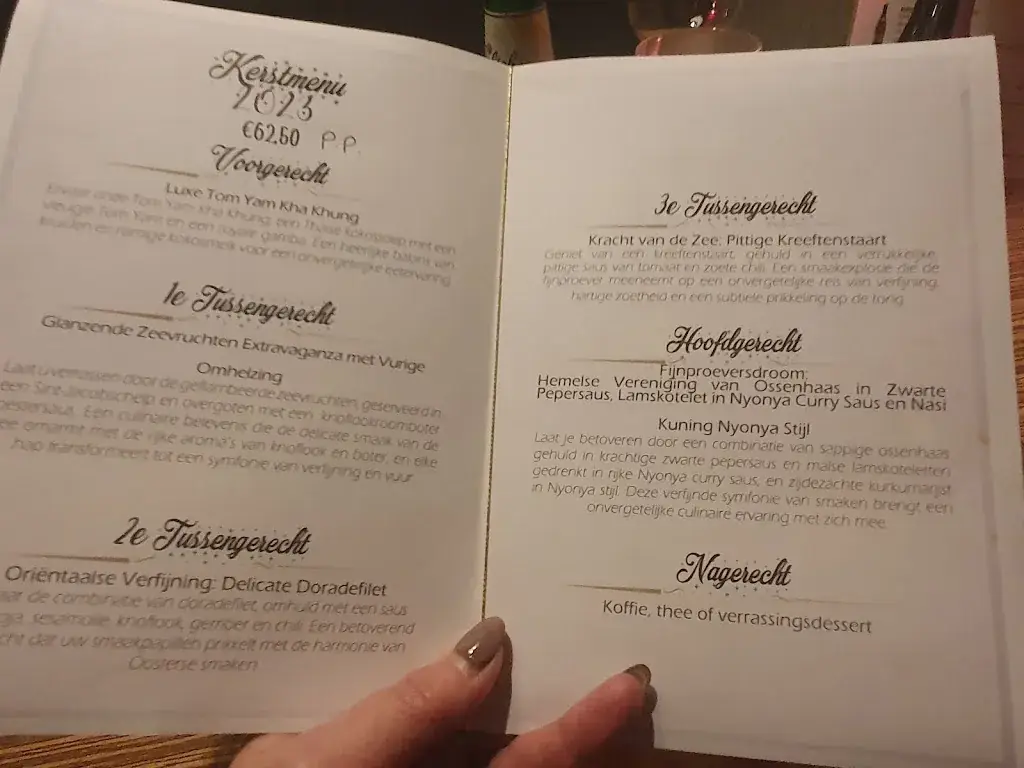 Kerstmenu
2023
€62.60 P.P.
Voorgerecht
Luxe Tom Yam Kha Khung
Ervaar onze Tom Yam Kha Khung, een Thaise kokossoep met een
vleugje Tom Yam en een gamba. Een heerlijke balans van
kruiden en romige kokosmelk voor een onvergetelijke eetervaring.
1e Tussengerecht
Glanzende Zeevruchten Extravaganza met Vurige
Omhelzing
Laat u verrassen door de geflambeerde zeevruchten, geserveerd in
een Sint-Jacobsschelp en overgoten met een knoflookroomboter
Een culinaire belevenis die de delicate smaak van de
zee omarmt met de rijke aroma's van knoflook en boter, en elke
hap transformeert tot een symfonie van verfijning en vuur.
2e Tussengerecht
Oriëntaalse Verfijning: Delicate Doradefilet
de combinatie van doradefilet, omhuld met een saus
sesamolie, knoflook, gember en chili. Een betoverend
dat uw smaakpapillen prikkelt met de harmonie van
Oosterse smaken.
3e Tussengerecht
Kracht van de Zee: Pittige Kreeftenstaart
Geniet van een kreeftenstaart, gehuld in een verrukkelijke,
pittige saus van tomaat en zoete chili. Een smaakexplosie die de
fijnproever meeneemt op een onvergetelijke reis van verfijning,
hartige zoetheid en een subtiele prikkeling op de tong.
Hoofdgerecht
Fijnproeversdroom:
Hemelse Vereniging van Ossenhaas in Zwarte
Pepersaus, Lamskotelet in Nyonya Curry Saus en Nasi
Kuning Nyonya Stijl
Laat je betoveren door een combinatie van sappige ossenhaas
gehuld in krachtige zwarte pepersaus en malse lamskoteletten
gedrenkt in rijke Nyonya curry saus, en zijdezachte kurkumarijst
in Nyonya stijl. Deze verfijnde symfonie van smaken brengt een
onvergetelijke culinaire ervaring met zich mee.
Nagerecht
Koffie, thee of verrassingsdessert